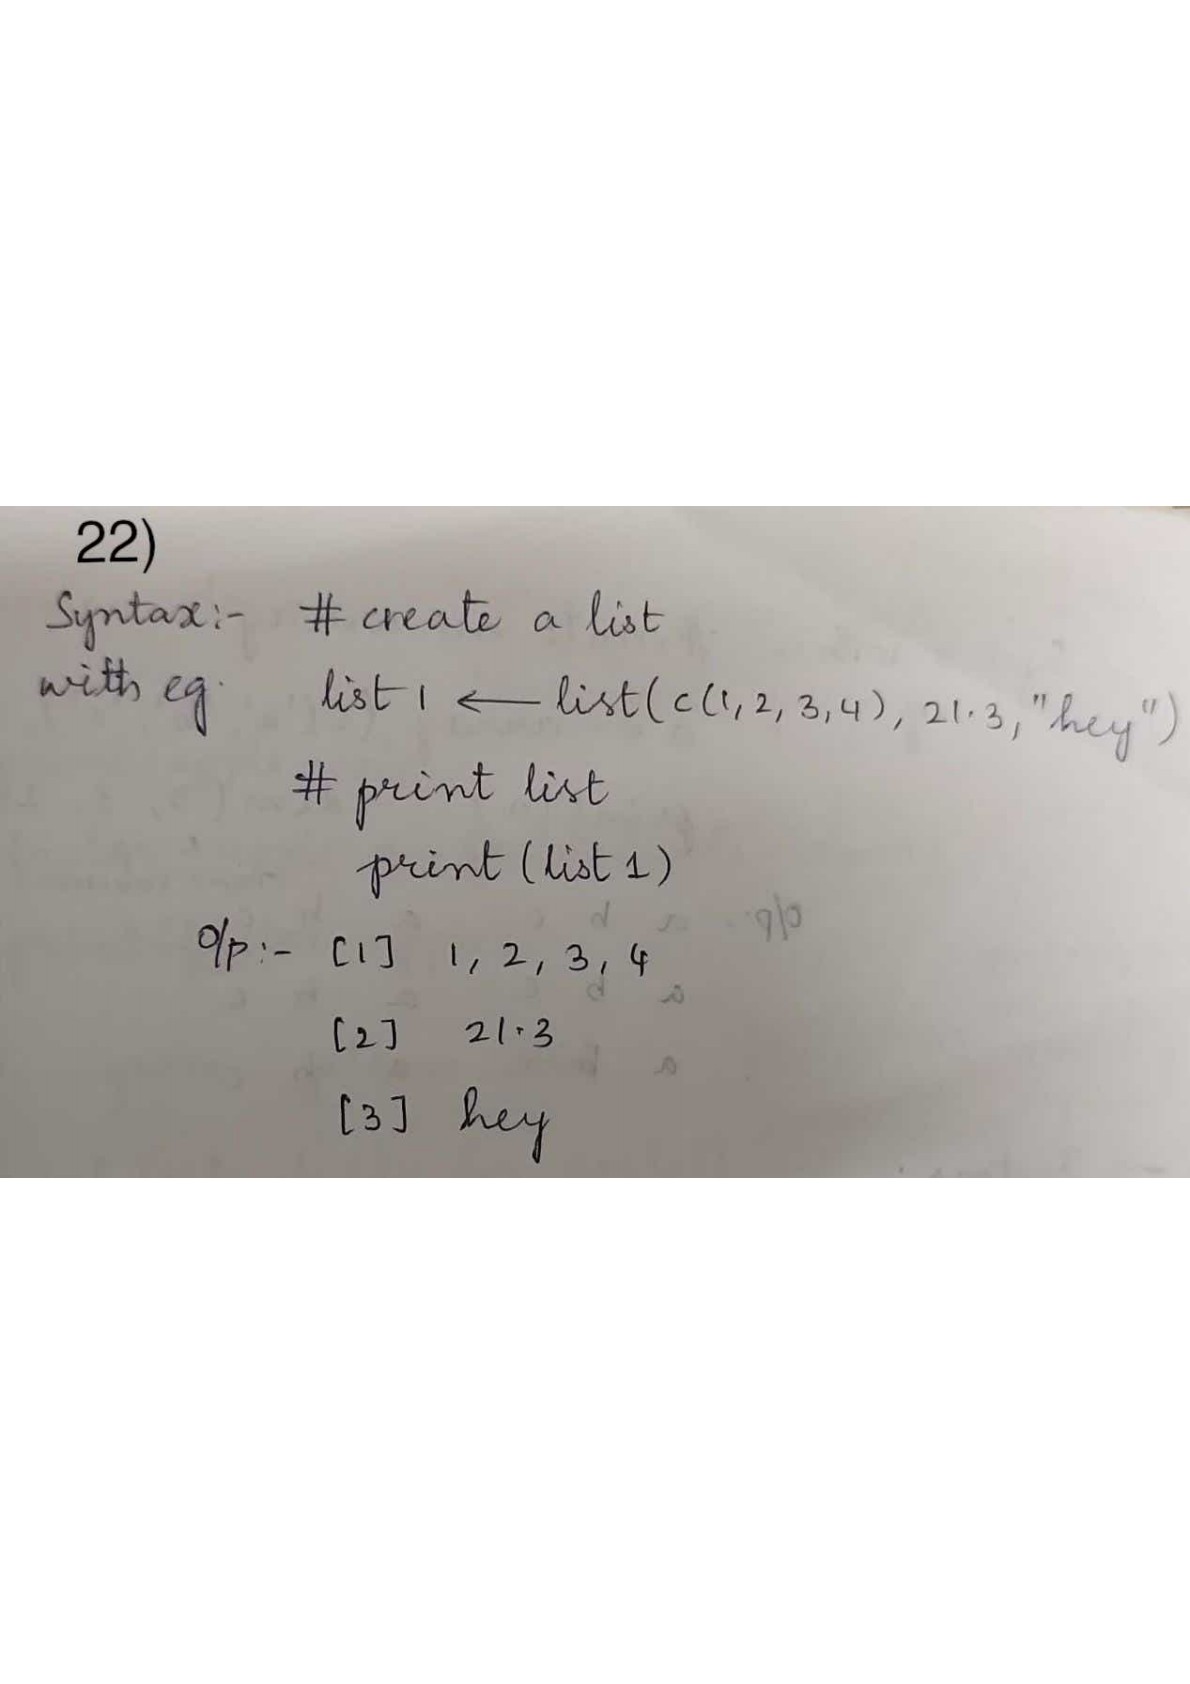 22)
Syntax:- # create a list
with eg. list 1 ← list(c(1, 2, 3, 4), 21.3, "hey")
# print list
print (list 1)
o/p:- [1] 1, 2, 3, 4
[2] 21.3
[3] hey